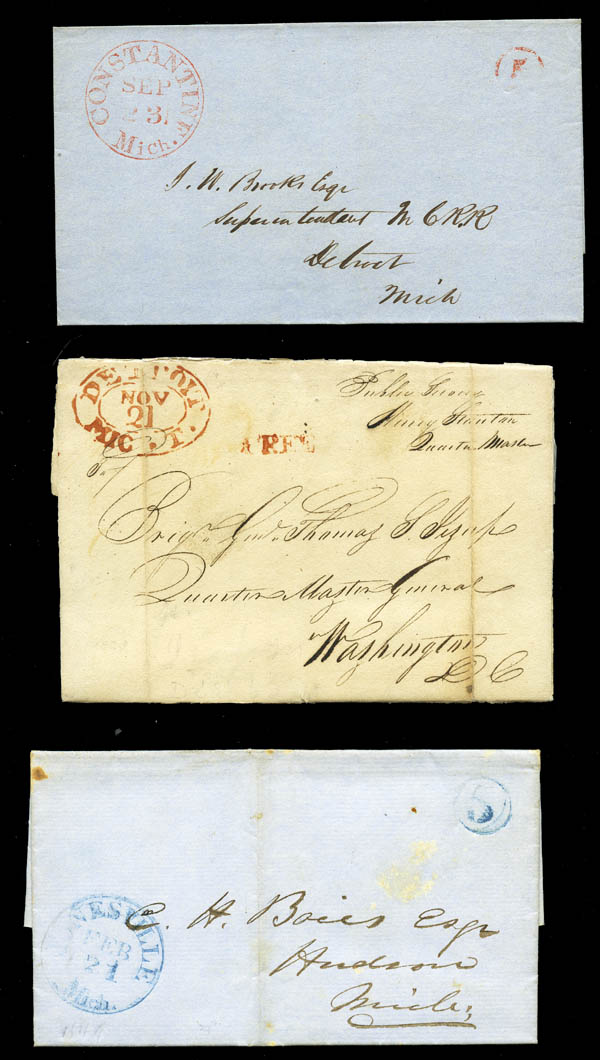 CONSTANTINE
SEP
23
Mich.
5
J. W. Brooks Esqr
Superintendent M C R.R
Detroit
Mich
DETROIT
NOV
21
MICH. T.
FREE
Public Service
Henry Stanton
Quarter Master
Brigr. Genl. Thomas S. Jesup
Quarter Master General
Washington
D C
5
NESVILLE
FEB
21
Mich.
C. H. Boies Esqr
Hudson
Mich,